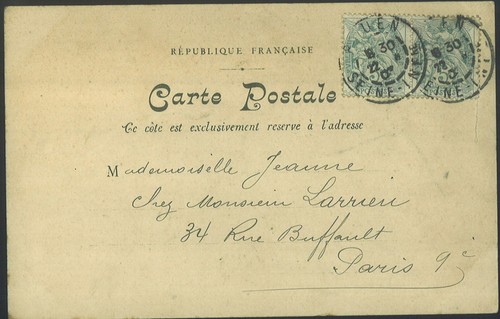 RÉPUBLIQUE FRANÇAISE
Carte Postale
Ce côte est exclusivement reserve à l'adresse
Mademoiselle Jeanne
Chez Monsieur Larrieu
34 Rue Buffault
Paris 9e
UEN
SEINE